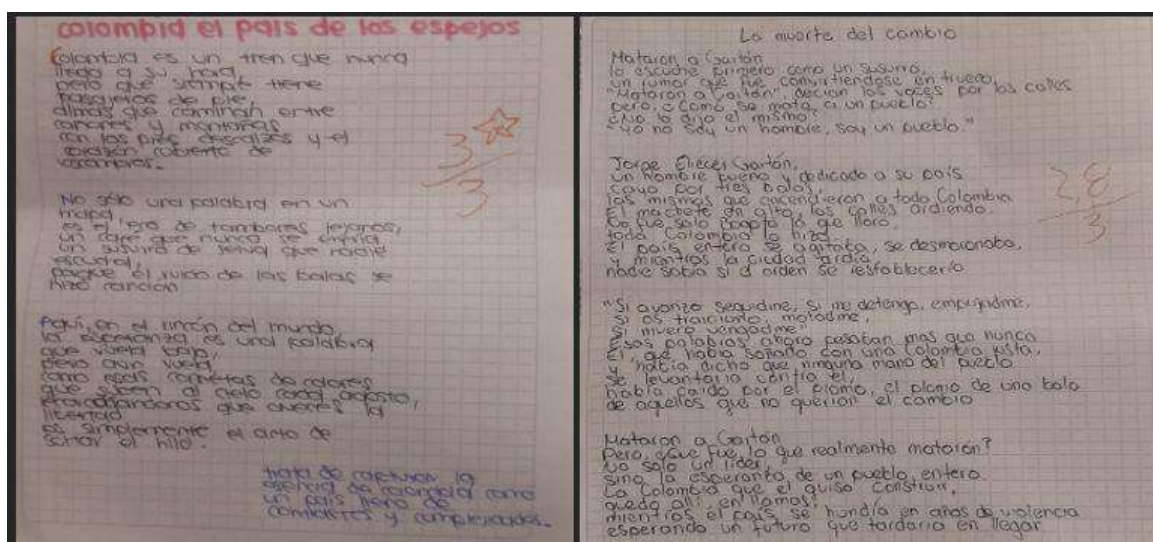 colombia el país de los espejos
Colombia es un tren que nunca
llega a su hora,
pero que siempre tiene
pasajeros de pie,
almas que caminan entre
cañones y montañas
con los pies descalzos y el
corazón cubierto de
No sólo una palabra en un
mapa,
es el eco de tambores lejanos,
un café que nunca se enfría
un susurro de selva que nadie
escucha,
porque el ruido de las balas se
hizo canción
Aquí, en el rincón del mundo,
la esperanza es una palabra
que vuela bajo,
pero aún vuela
como esas cometas de colores
que suben al cielo cada agosto,
que aveces la
libertad
es simplemente el acto de
soltar el hilo.
trata de capturar la
esencia de colombia como
un país lleno de
contrastes y complejidades.
3
3
La muerte del cambio
Mataron a Gaitán
lo escuché primero como un susurro,
un rumor que fue convirtiendose en trueno,
"Mataron a Gaitán", decian las voces por las calles
pero, ¿Cómo se mata a un pueblo?
¿No lo dijo el mismo?
"Yo no soy un hombre, soy un pueblo."
Jorge Eliecer Gaitán,
un hombre bueno y dedicado a su país
cayo por tres balas,
las mismas que encendieron a toda Colombia
El machete en alto, las calles ardiendo.
No fue solo Bogotá la que lloro.
toda Colombia lo hizo
El país entero se agitaba, se desmoronaba,
y mientras la ciudad ardía
nadie sabia si el orden se restablecería
"Si avanzo seguidme, si me detengo, empujadme,
si os traiciono, matadme,
si muero vengadme"
Esas palabras ahora pesaban mas que nunca
El, que habia soñado con una Colombia justa,
y habia dicho que ninguna mano del pueblo
se levantaria contra el,
habia caido por el plomo, el plomo de una bala
de aquellos que no querian el cambio
Mataron a Gaitán
Pero, ¿Que fue, lo que realmente mataron?
No solo un líder,
sino la esperanza de un pueblo entero.
La Colombia que el quiso construir,
quedo alli, en llamas,
mientras el país se hundía en años de violencia
esperando un futuro que tardaria en llegar
2,8
3